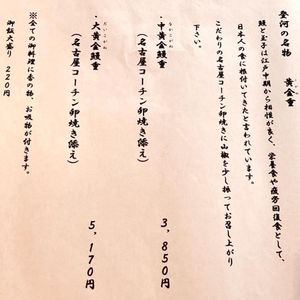 登河の名物　黄金重
鰻と玉子は江戸中期から相性が良く、栄養食や疲労回復食として、
日本人の食に根付いてきたと言われています。
こだわりの名古屋コーチン卵焼きに山椒を少し振ってお召し上がり
下さい。
・中黄金鰻重
なかこがね
（名古屋コーチン卵焼き添え）
3,850円
・大黄金鰻重
だいこがね
（名古屋コーチン卵焼き添え）
5,170円
※全ての御料理に香の物、お吸物が付きます。
御飯大盛り　220円